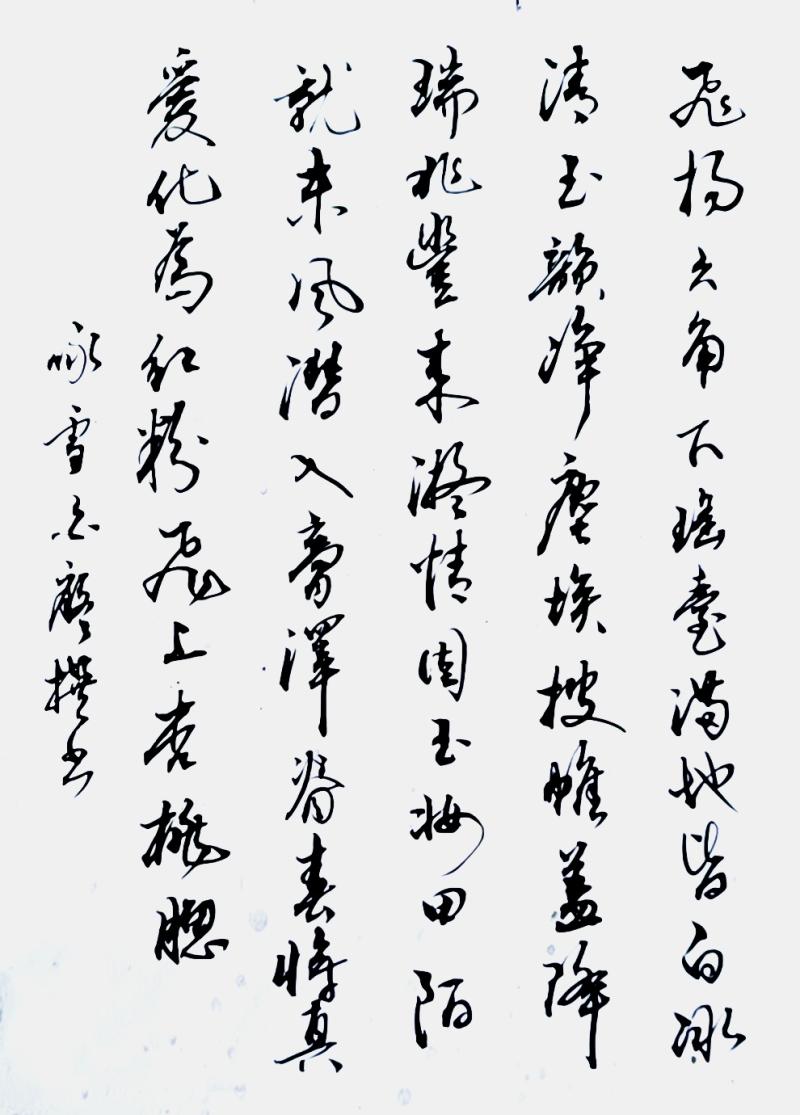 飛揚六角下瑤臺滿地皆白冰
清玉韻淨塵埃披帷蓋降
瑞兆豐來凝情固玉妝田陌
就未風潛入膏澤脊春將真
愛化為紅粉飛上杏桃腮
詠雪 撰書